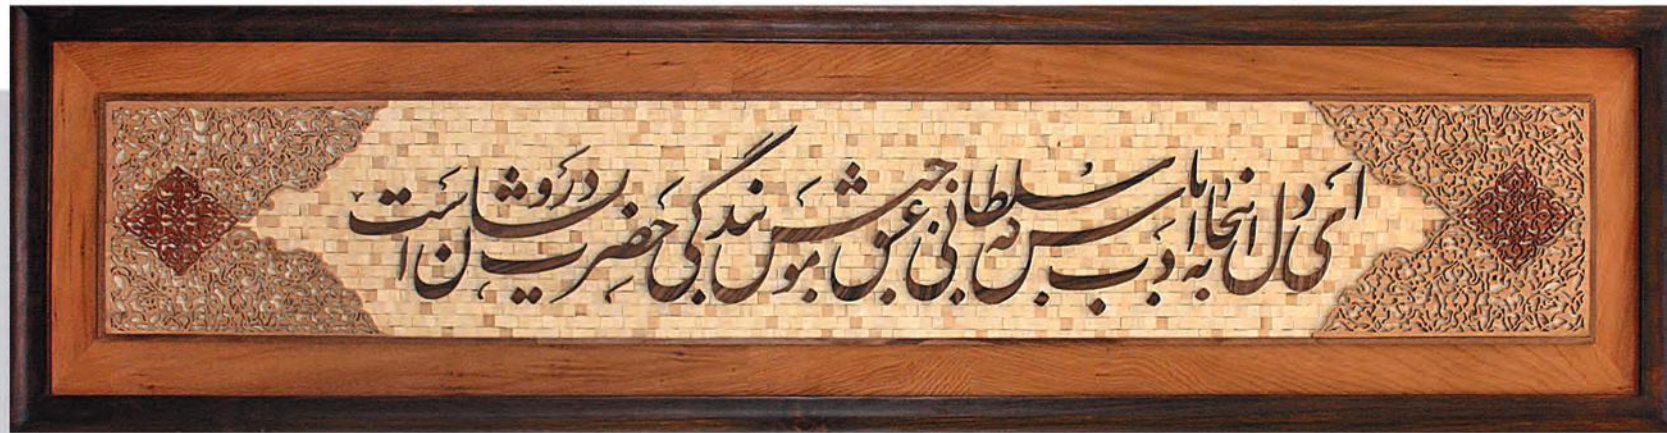 ای دل اینجا به ادب باش که سلطانی عشق موجبش بندگی حضرت درویشان است